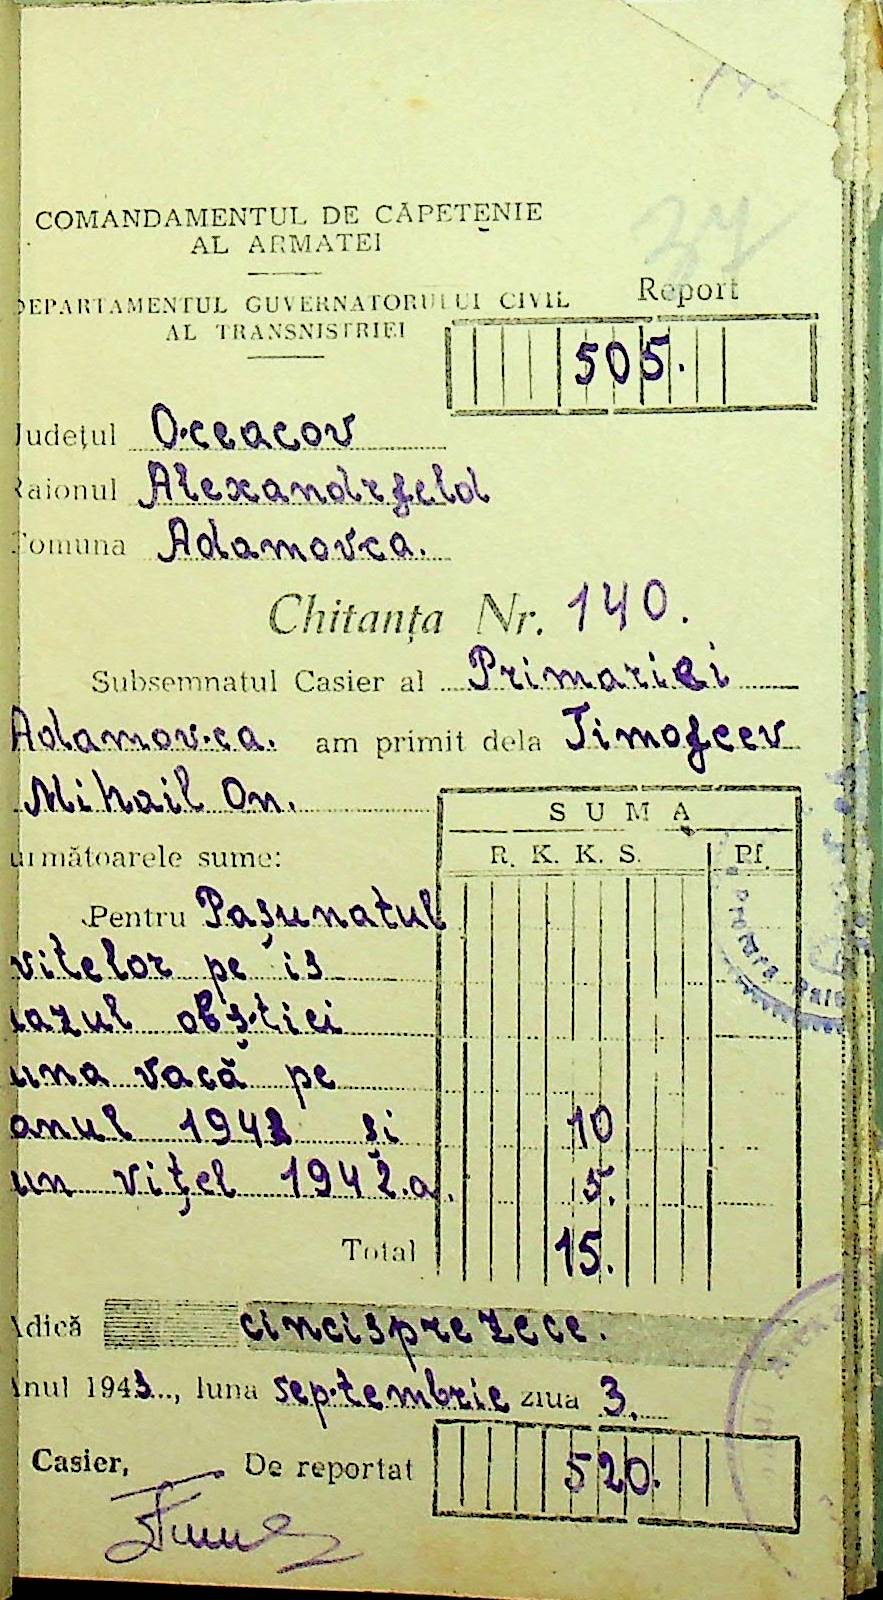 37
COMANDAMENTUL DE CĂPETENIE
AL ARMATEI
DEPARTAMENTUL GUVERNATORULUI CIVIL
AL TRANSNISTRIEI
Report
505.
Județul Oceacov
Raionul Alexandrfeld
Comuna Adamovca.
Chitanța Nr. 140.
Subsemnatul Casier al Primariei
Adamovca. am primit dela Timofeev
Mihail On.
următoarele sume:
SUMA
R. K. K. S. Pf.
Pentru Pașunatul
vitelor pe is
lazul obștiei
una vacă pe
anul 1942 și 10
un vițel 1942.a. 5.
Total 15.
Adică cincisprezece.
Anul 1943.., luna septembrie ziua 3.
Casier, De reportat 520.